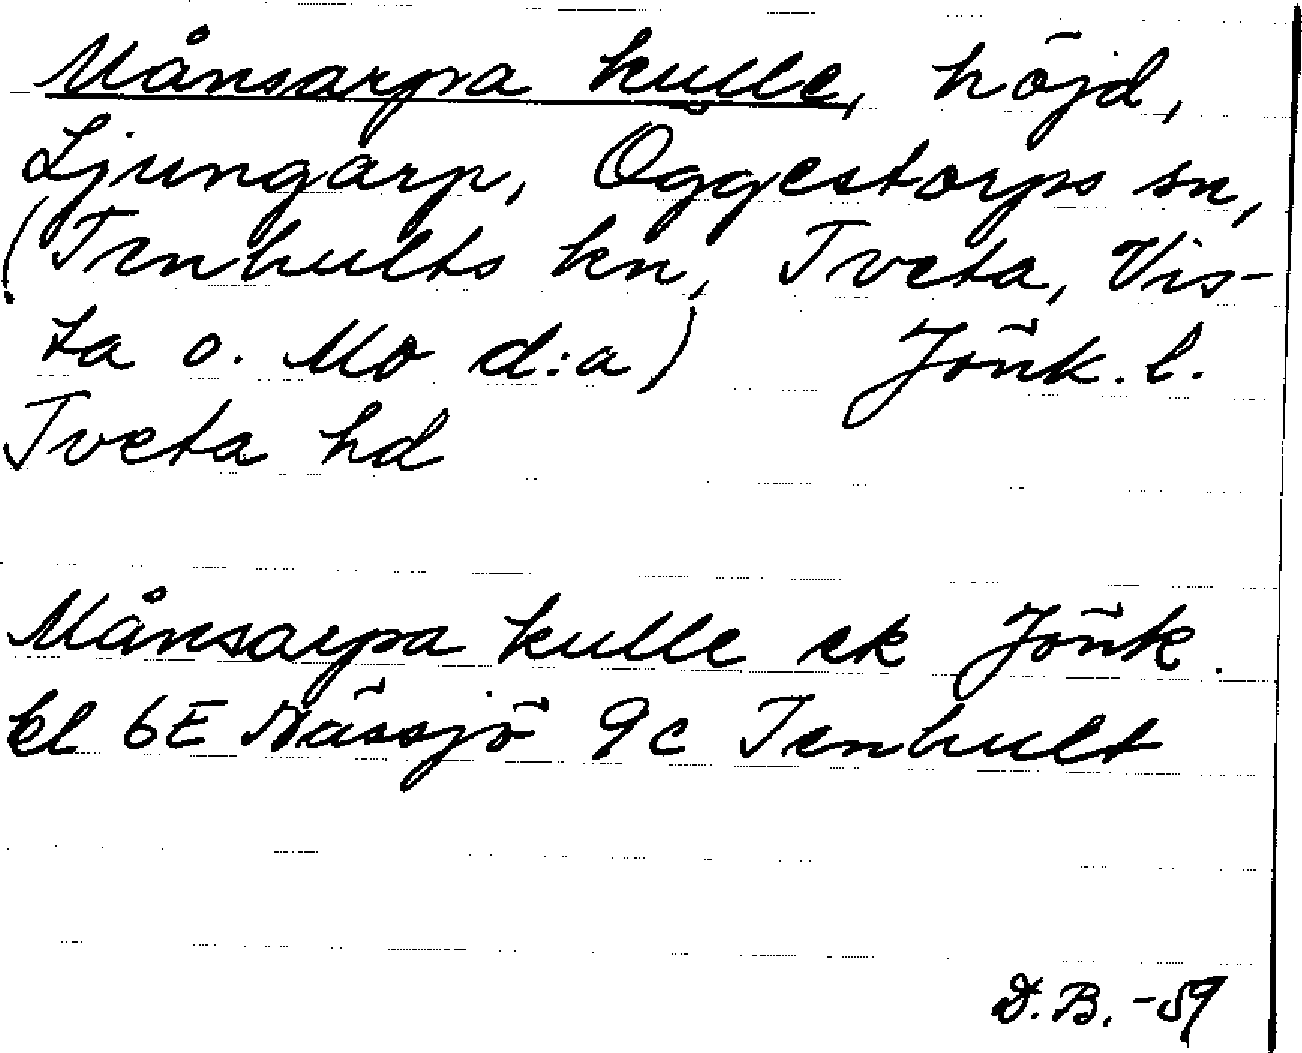 Månsarpa kulle, höjd,
Ljungarp, Öggestorps sn,
(Tenhults kn, Tveta, Vis-
ta o. Mo d:a) Jönk. l.
Tveta hd
Månsarpa kulle ek Jönk.
bl 6E Nässjö 9c Tenhult
D.B. -59